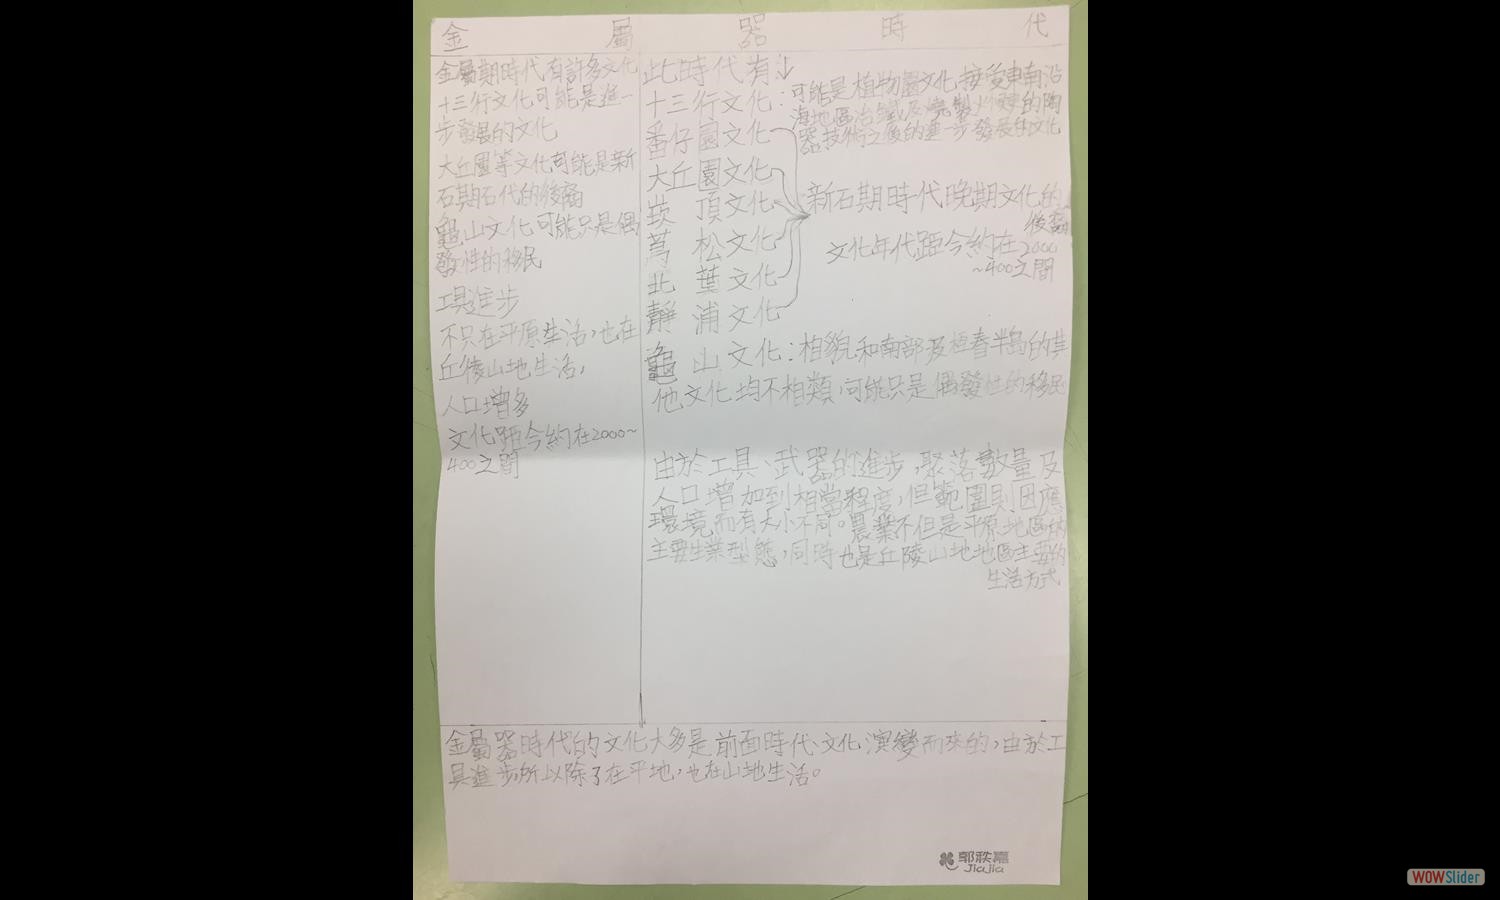 金屬器時代
金屬期時代有許多文化
十三行文化可能是進一
步發展的文化
大丘園等文化可能是新
石期石代的後裔
龜山文化可能只是偶
發性的移民
工具進步
不只在平原生活，也在
丘陵山地生活，
人口增多
文化距今約在2000~
400之間
此時代有↓
十三行文化：可能是植物園文化接受東南沿
海地區冶鐵及燒製的陶
器技術之後的進一步發展的文化
番仔園文化
大丘園文化
崁頂文化
蔦松文化
北葉文化
靜浦文化
新石期時代晚期文化的
後裔
文化年代距今約在2000
~400之間
龜山文化：相貌和南部及恆春半島的其
他文化均不相類，可能只是偶發性的移民
由於工具、武器的進步，聚落數量及
人口增加到相當程度，但範圍則因應
環境而有大小不同。農業不但是平原地區的
主要生業型態，同時也是丘陵山地地區主要的
生活方式
金屬器時代的文化大多是前面時代文化演變而來的，由於工
具進步所以除了在平地，也在山地生活。
郭秩嘉
JiaJia
WOWSlider